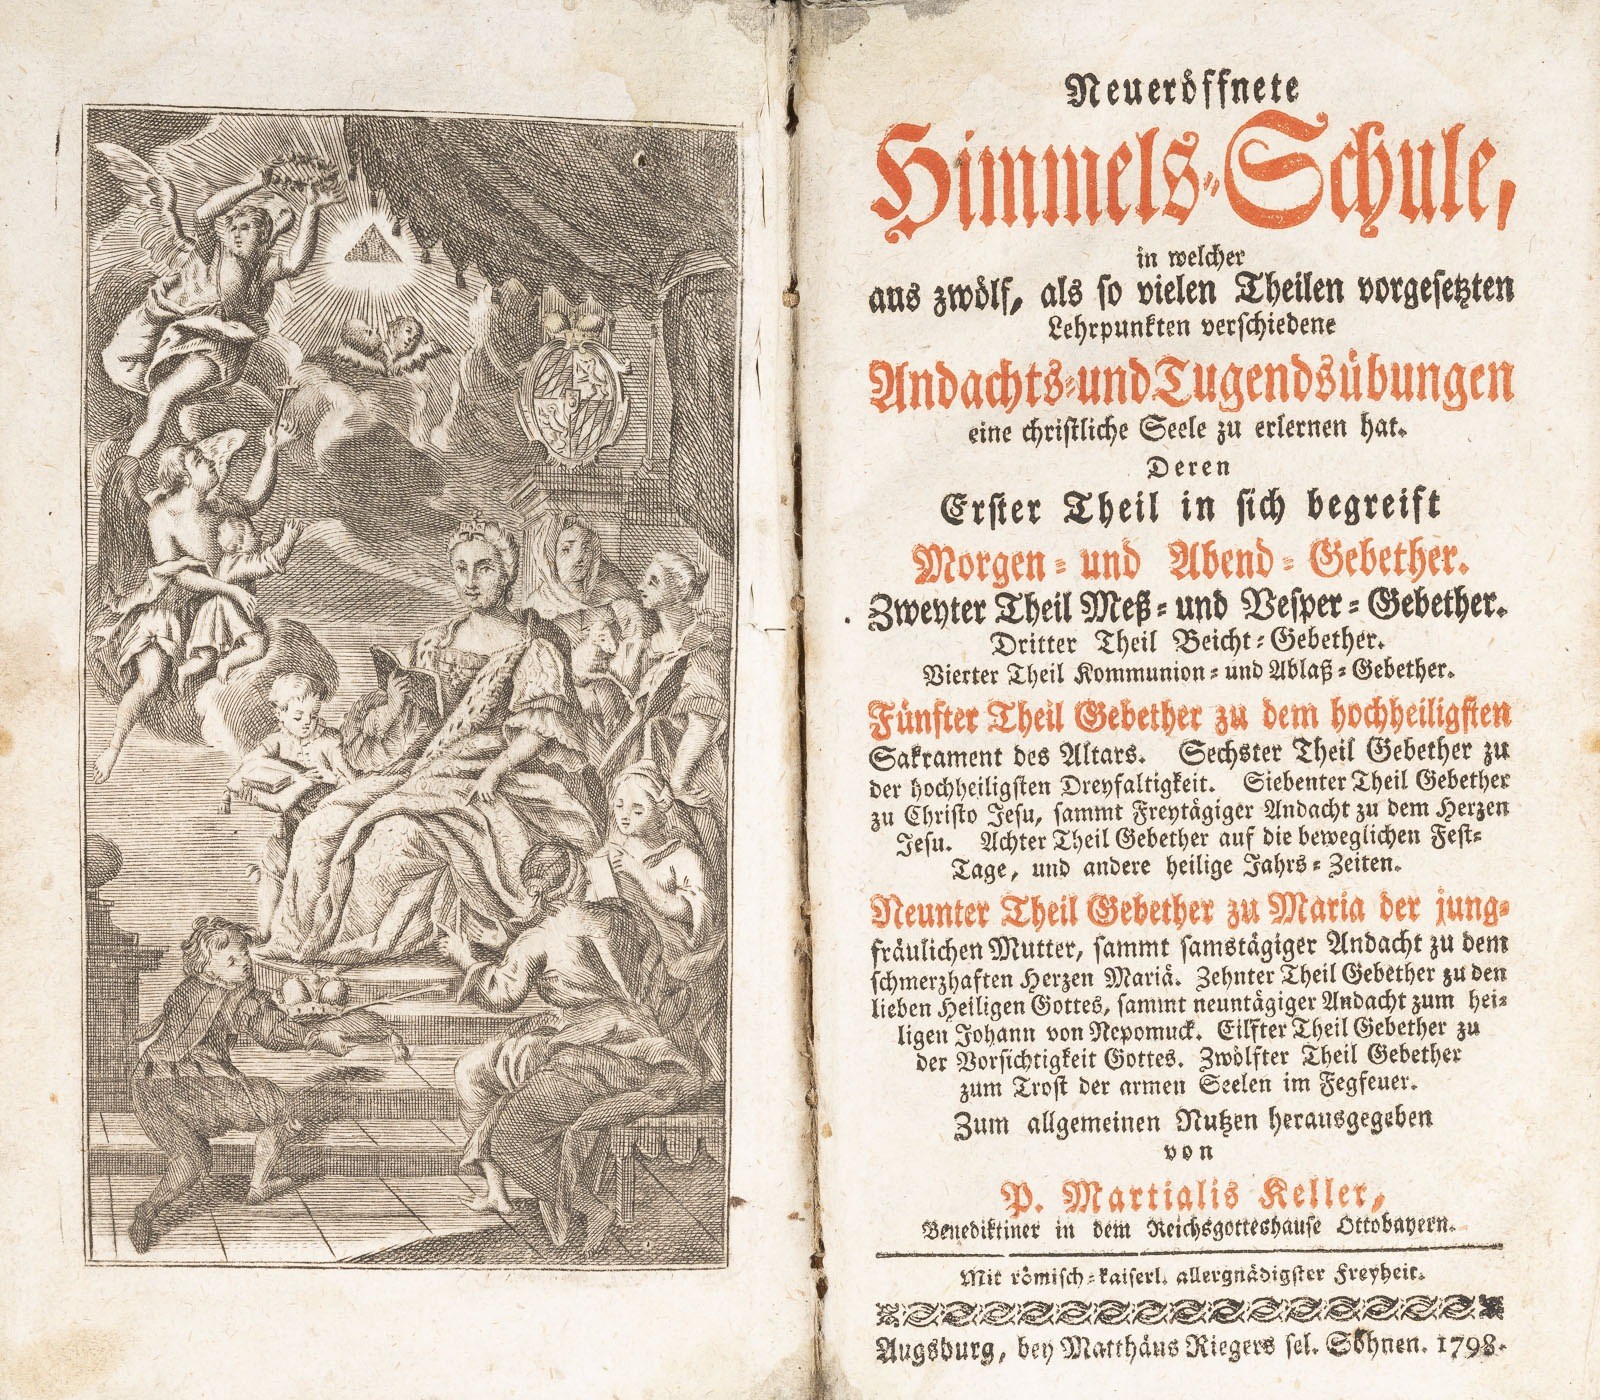 Neueröffnete
Himmels-Schule,
in welcher
aus zwölf, als so vielen Theilen vorgesetzten
Lehrpunkten verschiedene
Andachts-und Tugendsübungen
eine christliche Seele zu erlernen hat.
Deren
Erster Theil in sich begreift
Morgen- und Abend-Gebether.
Zweyter Theil Meß- und Vesper-Gebether.
Dritter Theil Beicht-Gebether.
Vierter Theil Kommunion- und Ablaß-Gebether.
Fünfter Theil Gebether zu dem hochheiligsten
Sakrament des Altars. Sechster Theil Gebether zu
der hochheiligsten Dreyfaltigkeit. Siebenter Theil Gebether
zu Christo Jesu, sammt Freytägiger Andacht zu dem Herzen
Jesu. Achter Theil Gebether auf die beweglichen Fest-
Tage, und andere heilige Jahrs-Zeiten.
Neunter Theil Gebether zu Maria der jung-
fräulichen Mutter, sammt samstägiger Andacht zu dem
schmerzhaften Herzen Mariä. Zehnter Theil Gebether zu den
lieben Heiligen Gottes, sammt neuntägiger Andacht zum hei-
ligen Johann von Nepomuck. Eilfter Theil Gebether zu
der Vorsichtigkeit Gottes. Zwölfter Theil Gebether
zum Trost der armen Seelen im Fegfeuer.
Zum allgemeinen Nutzen herausgegeben
von
P. Martialis Keller,
Benediktiner in dem Reichsgotteshause Ottobayern.
Mit römisch-kaiserl. allergnädigster Freyheit.
Augsburg, bey Matthäus Riegers sel. Söhnen. 1798.